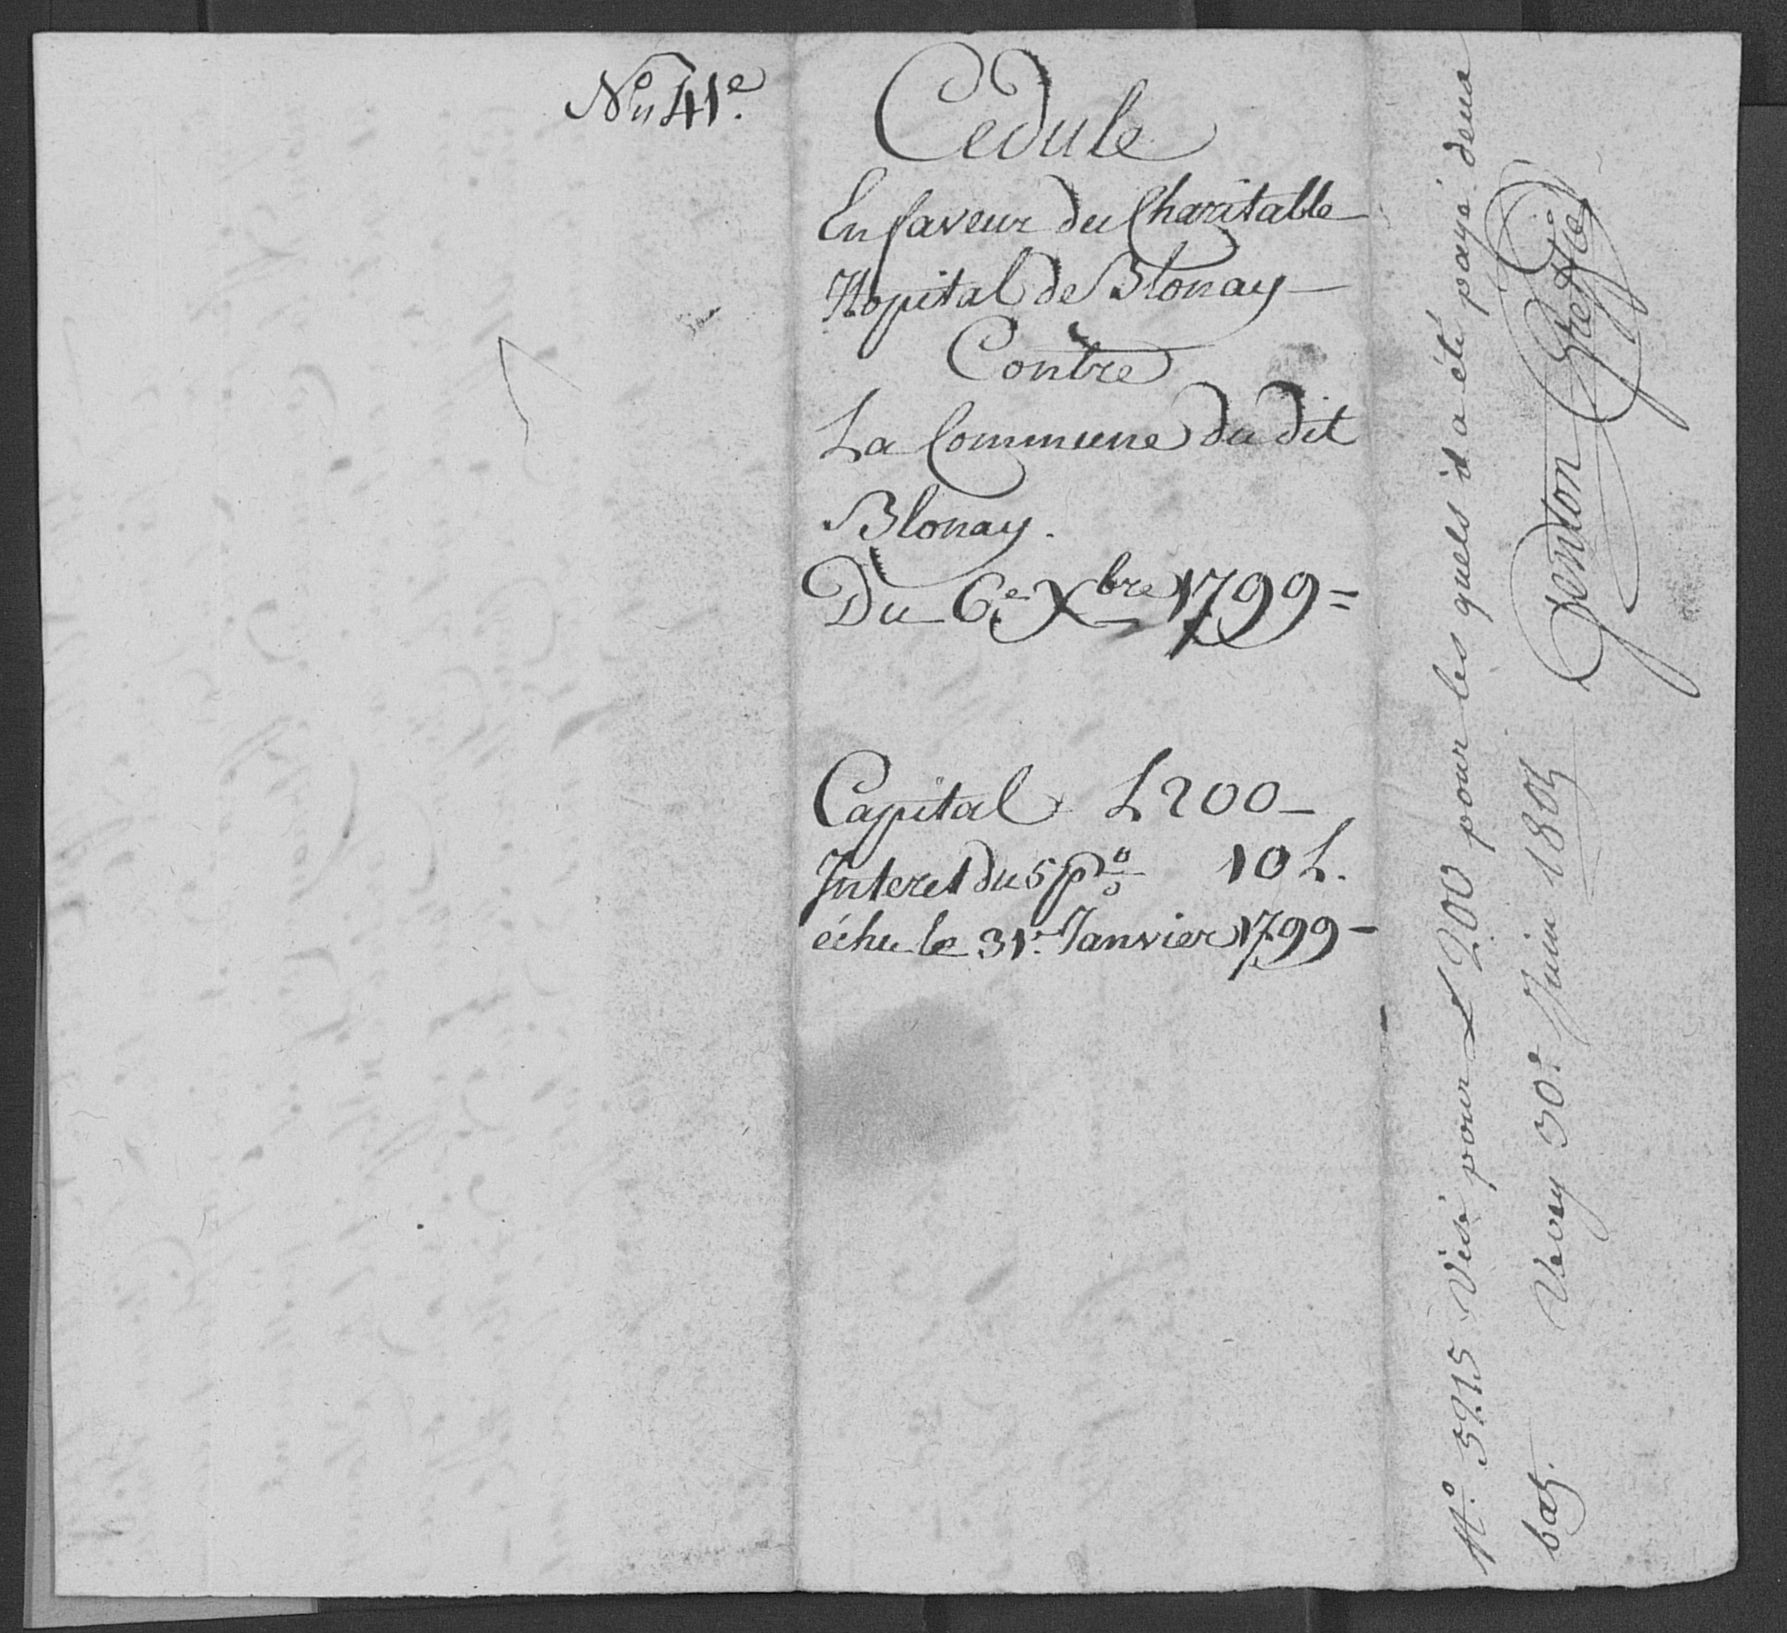 No 41e.
Cedule
En faveur du Charitable
Hopital de Blonay
Contre
La Commune du dit
Blonay.
Du 6e Xbre 1799=
Capital L 200-
Interet du 5 p% 10 L.
échu le 31e. Janvier 1799-
No. 5215 Visé pour L 200 pour les quels il a été payé deux
batz. Vevey 30e Juin 1801
Genton Greffier